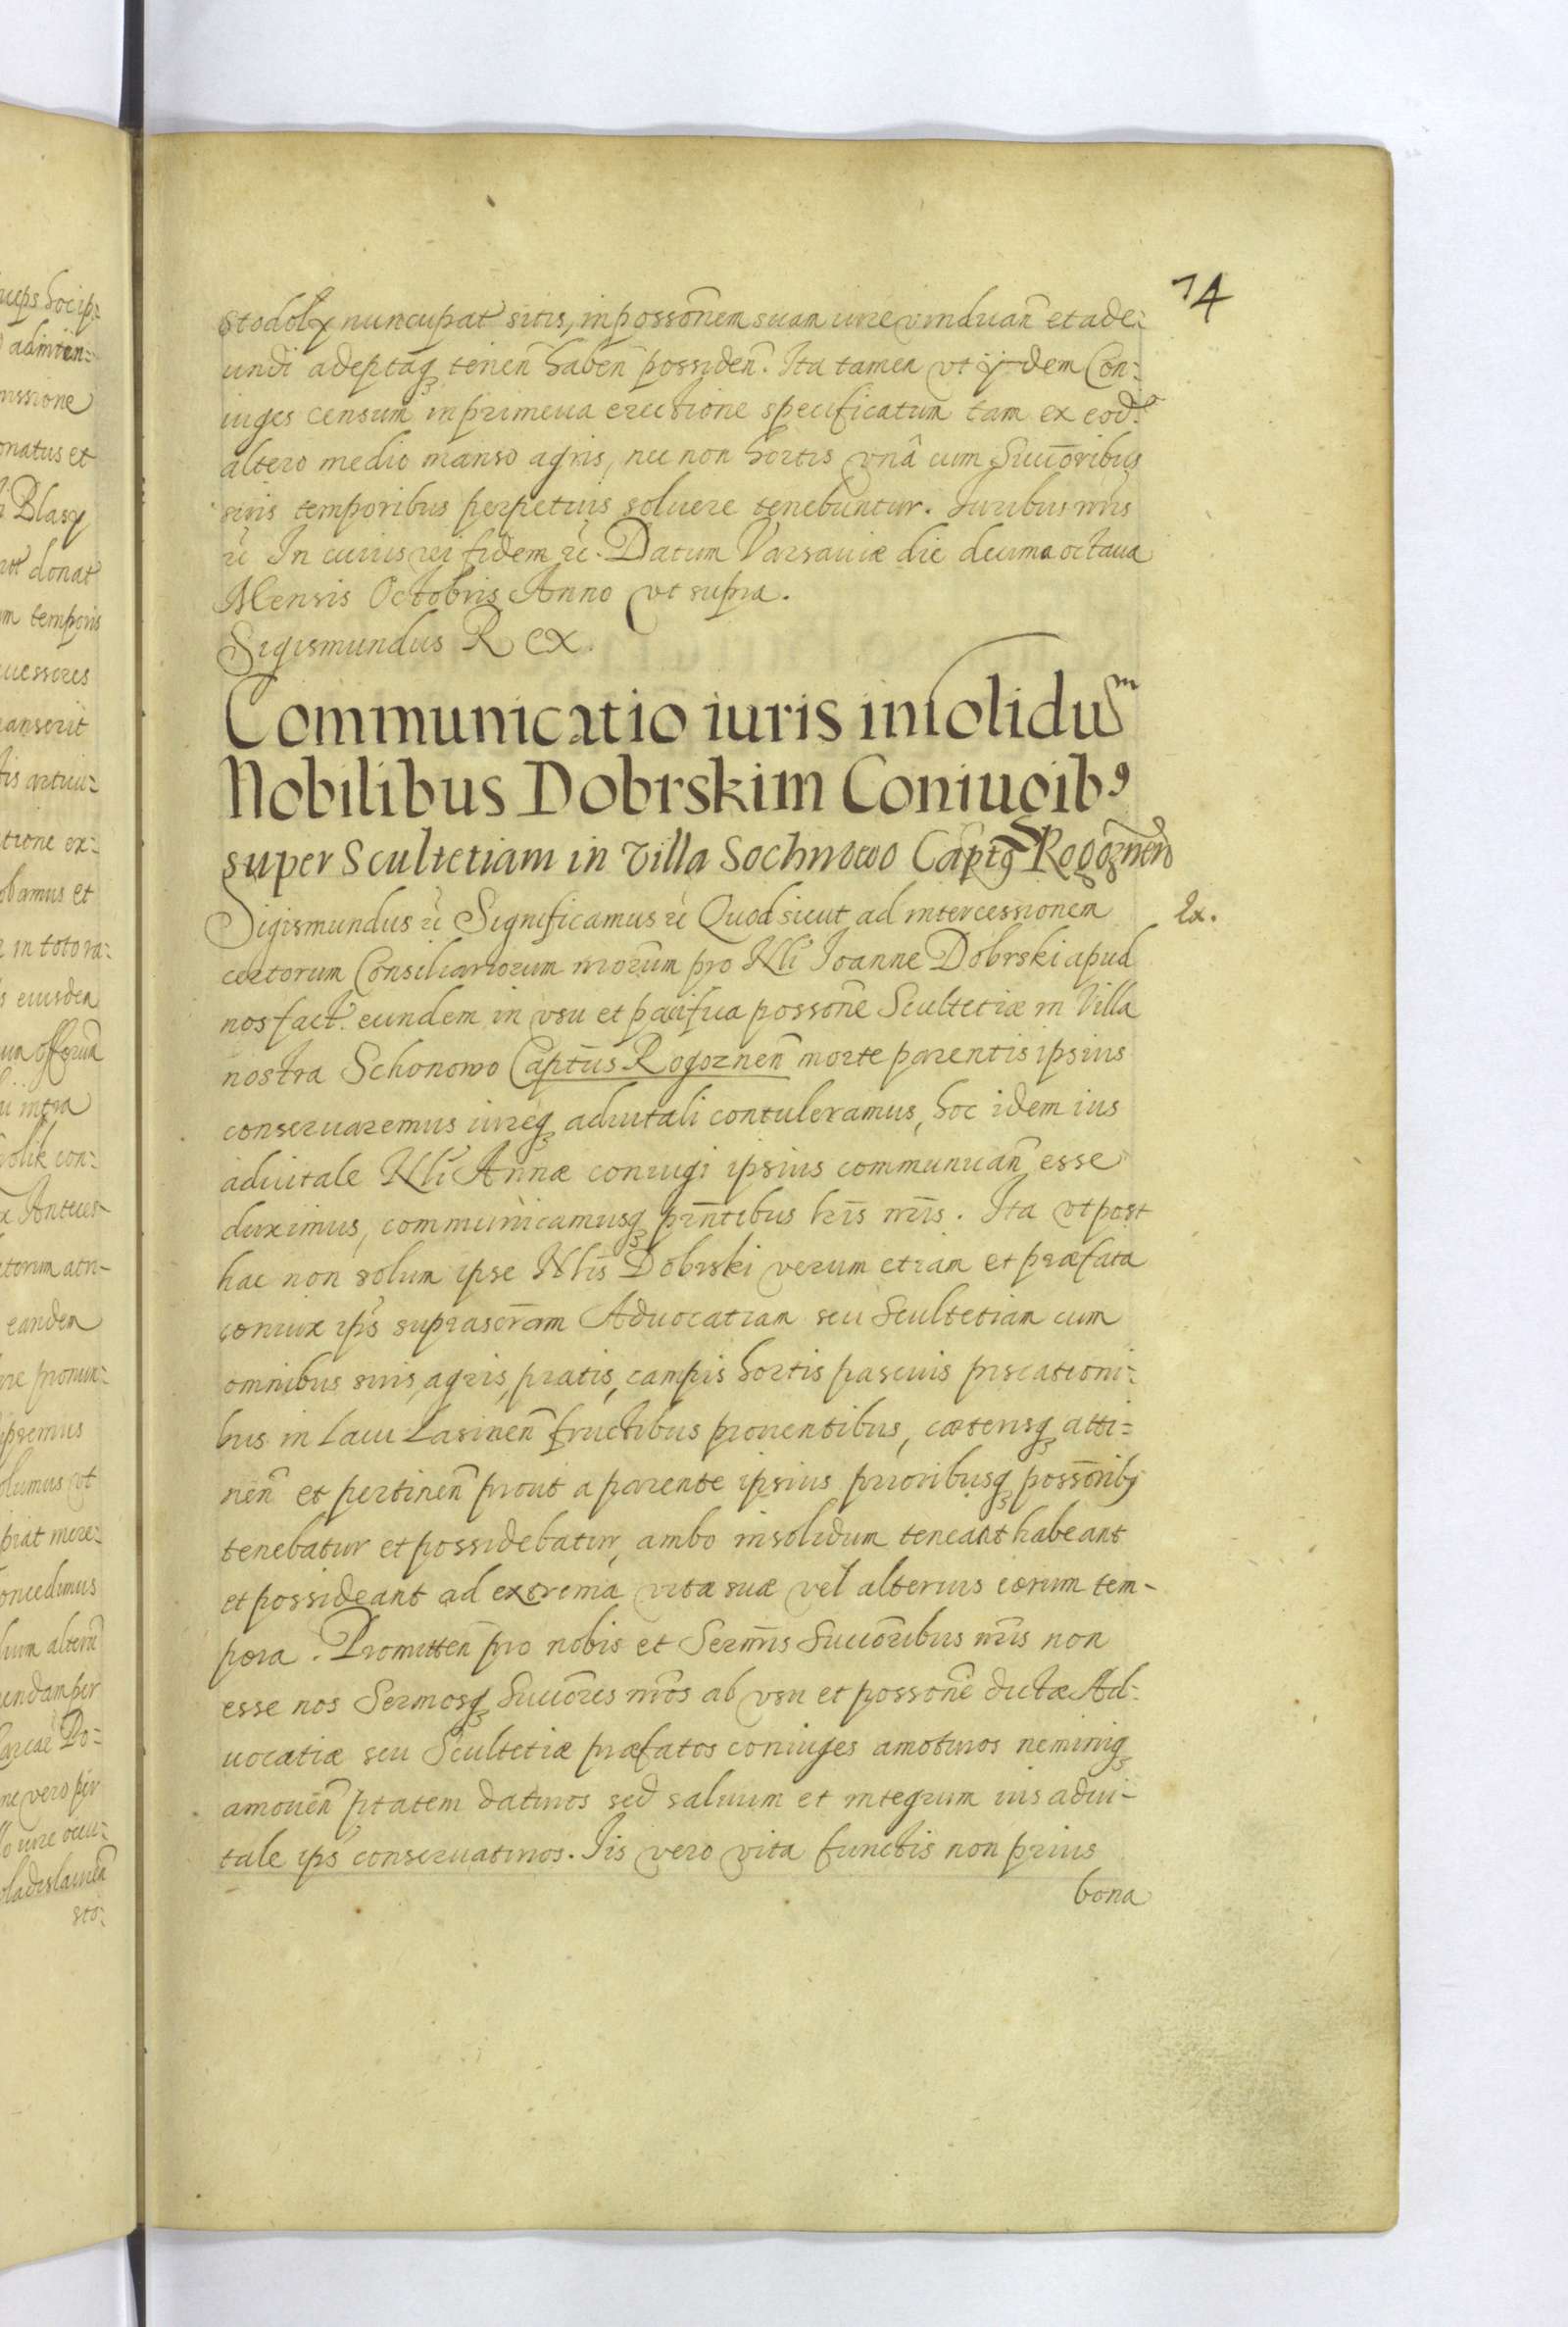 74
Stodoly nuncupat sitis, in possōnem suam iure vinduan̄ et ade:
undi adeptaq₃ tenen̄ haben̄ possiden̄. Ita tamen vt ijdem Con:
iuges censum in primeua erectione specificatum tam ex eod.
altero medio manso agris, nec non hortis vnâ cum Succōribus
suis temporibus perpetuis soluere tenebuntur. Iuribus nr̄is
etc̄ In cuius rei fidem etc̄. Datum Varsauiæ die decima octaua
Mensis Octobris Anno vt supra.
Sigismundus Rex.
Communicatio iuris insolidum
Nobilibus Dobrskim Coniugibꝰ
super Scultetiam in villa Sochnowo Capt̄ꝰ Rogoznen̄
Sigismundus etc̄ Significamus etc̄ Quod sicut ad intercessionem
Ex.
certorum Consiliariorum nr̄orum pro Nli Ioanne Dobrski apud
nos fact. eundem in vsu et pacifica possōne Scultetiæ in Villa
nostra Schonowo Capt̄us Rogoznen̄ morte parentis ipsius
conseruaremus iureq₃ aduitali contuleramus, hoc idem ius
aduitale Nli Annæ coniugi ipsius communican̄ esse
duximus, communicamusq₃ pn̄tibus lr̄is nr̄is. Ita vt post
hac non solum ipse Nlis Dobrski verum etiam et præfata
coniux ips̄ suprascr̄am Aduocatiam seu Scultetiam cum
omnibus suis, agris, pratis, campis hortis pascuis piscationi:
bus in lacu Lasinen̄ fructibus prouentibus, cæterisq₃ atti:
nen̄ et pertinen̄ prout a parente ipsius prioribusq₃ possōribꝫ
tenebatur et possidebatur, ambo insolidum teneant habeant
et possideant ad extrema vitæ suæ vel alterius eorum tem-
pora. Promitten̄ pro nobis et Serm̄is Succōribus nr̄is non
esse nos Sermosq₃ Succōres nr̄os ab vsu et possōne dictæ Ad:
uocatiæ seu Scultetiæ præfatos coniuges amoturos neminiq₃
amouen̄ ptatem daturos sed saluum et integrum ius adui-
tale ips̄ conseruaturos. Iis vero vita functis non prius
bona